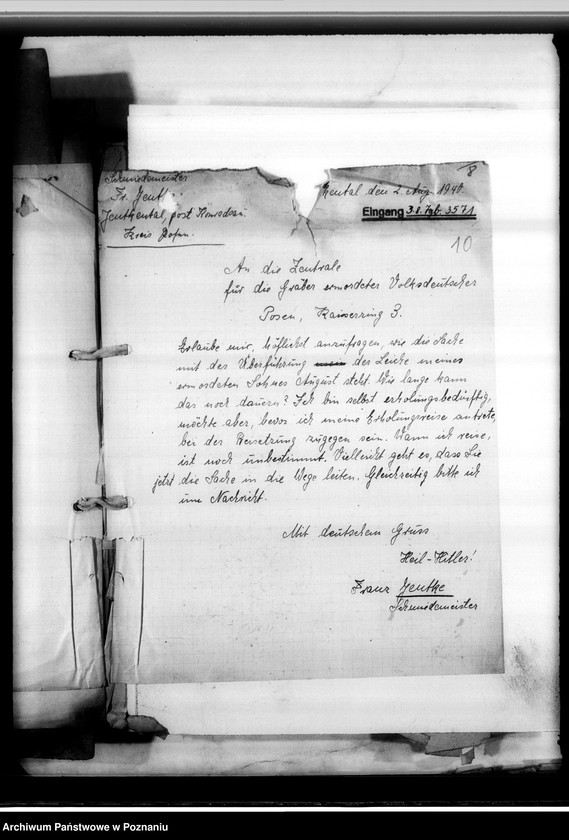 Schmiedemeister
Fr. Jentke
Jenthental, post Komsdau
Kreis Posen.
ental den 2. Aug. 1940.
8
Eingang 3.8. 3571
10
An die Zentrale
für die Gräber ermordeter Volksdeutscher
Posen, Kaiserring 3.
Erlaube mir, höflichst anzufragen, wie die Sache
mit der Überführung der Leiche meines
ermordeten Sohnes August steht. Wie lange kann
das noch dauern? Ich bin selbst erholungsbedürftig,
möchte aber, bevor ich meine Erholungsreise antrete,
bei der Beisetzung zugegen sein. Wann ich reise,
ist noch unbestimmt. Vielleicht geht es, dass Sie
jetzt die Sache in die Wege leiten. Gleichzeitig bitte ich
um Nachricht.
Mit deutschem Gruss
Heil-Hitler!
Franz Jentke
Schmiedemeister
Archiwum Państwowe w Poznaniu